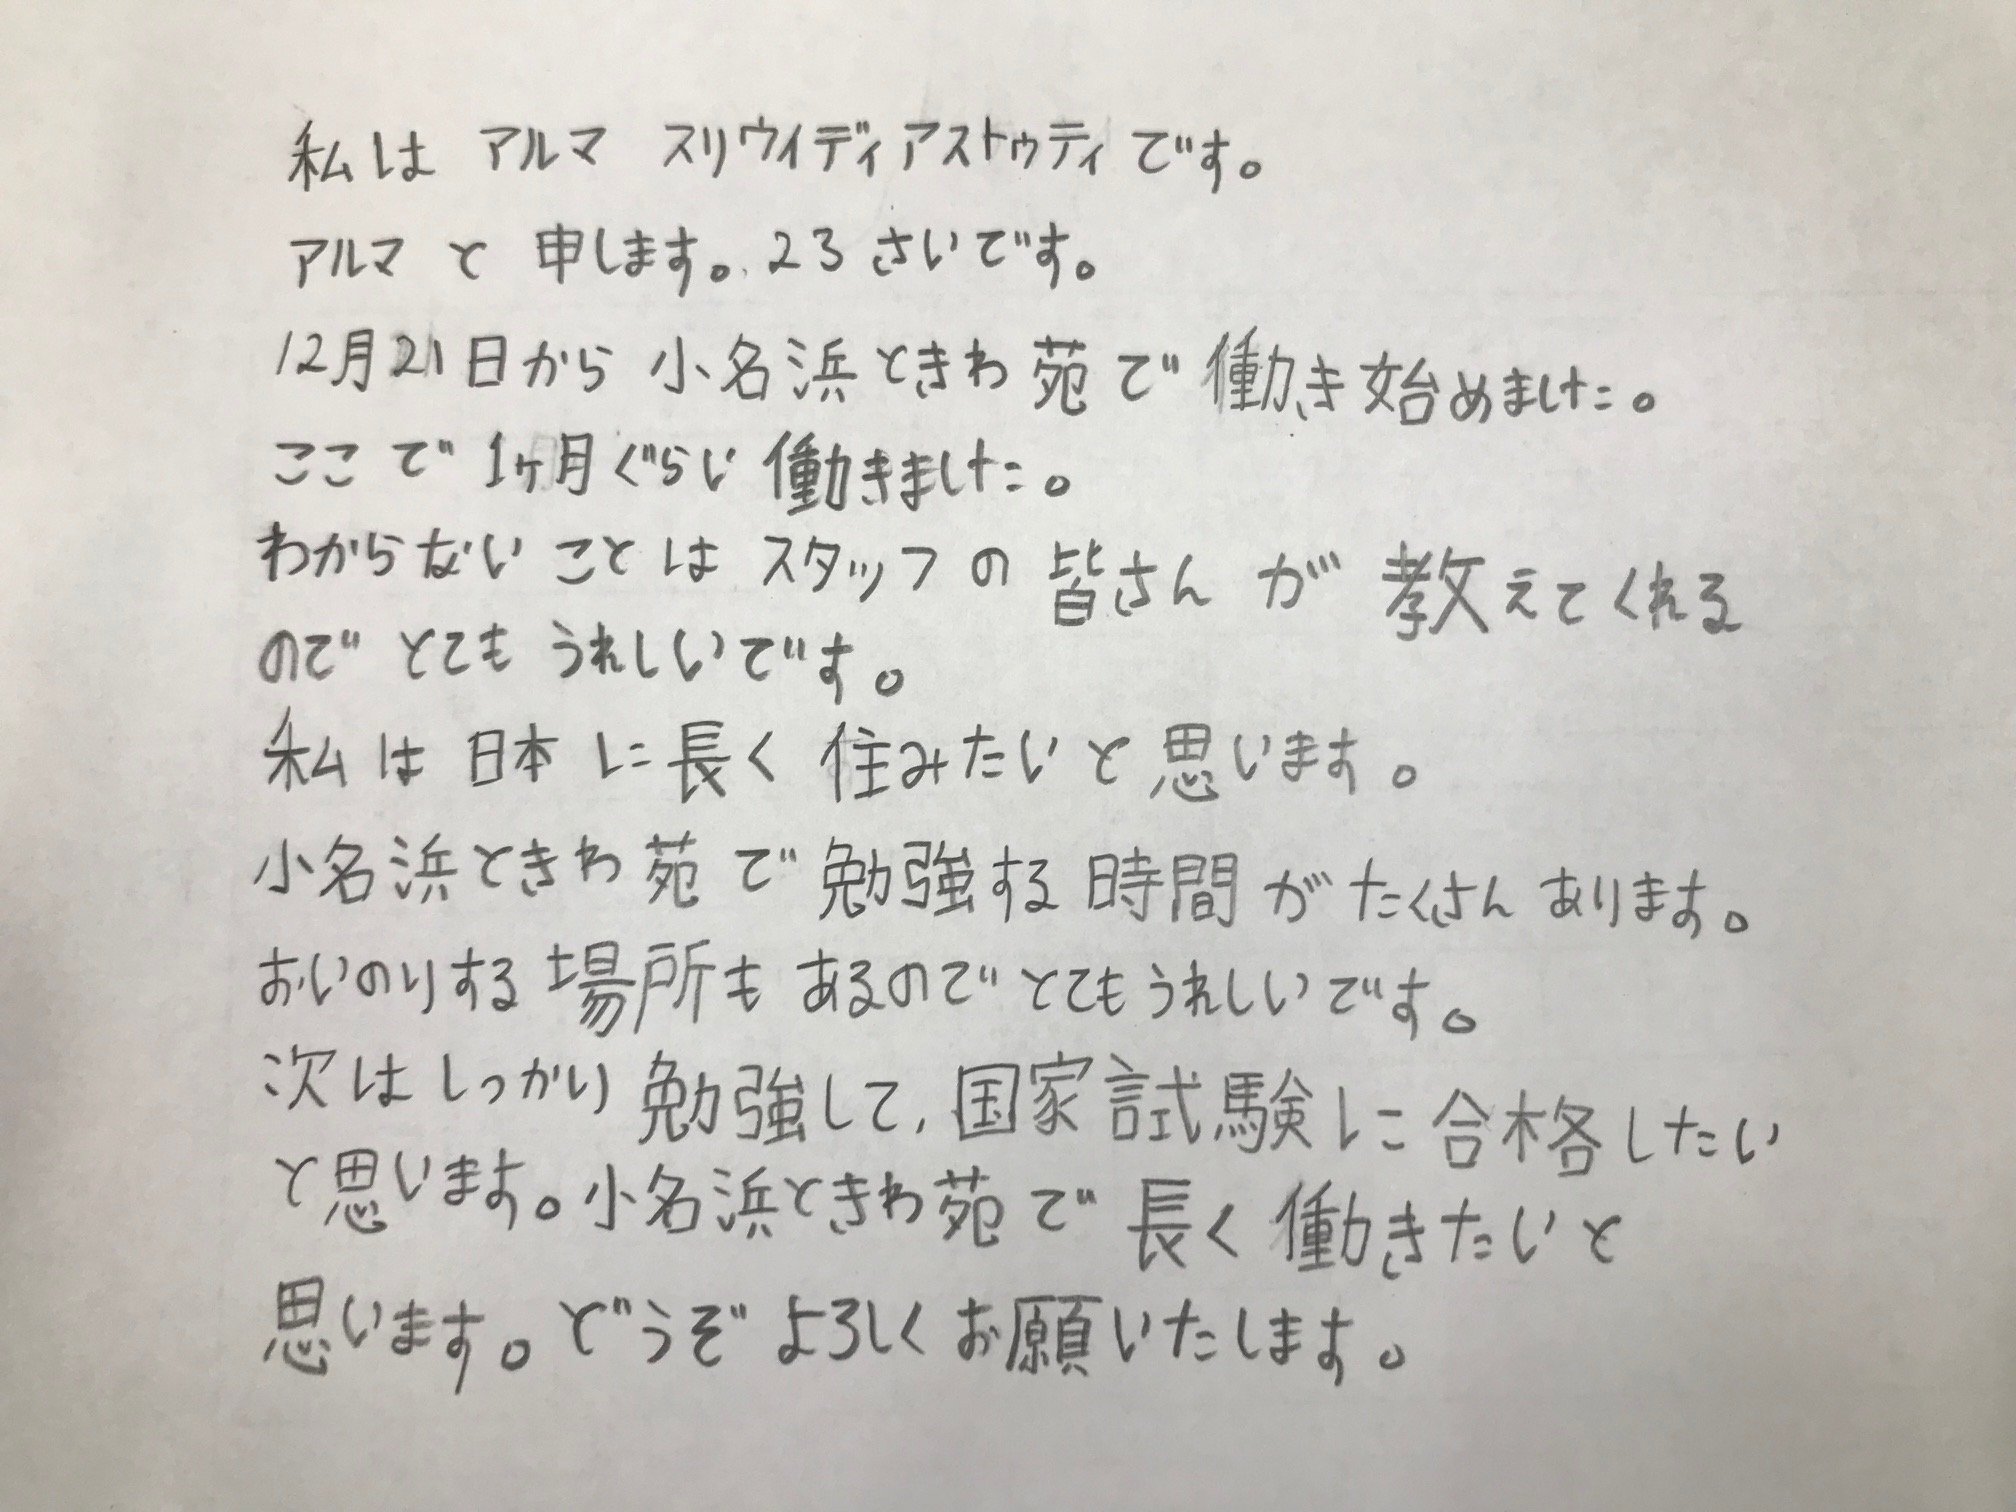 私は アルマ スリウィディアストゥティです。
アルマ と 申します。23さいです。
12月21日から 小名浜ときわ苑で 働き始めました。
ここで 1ヶ月ぐらい 働きました。
わからない ことは スタッフの 皆さん が 教えてくれる
ので とても うれしいです。
私は 日本に 長く 住みたいと 思います。
小名浜ときわ苑で 勉強する 時間がたくさん あります。
おいのりする 場所も あるので とても うれしいです。
次は しっかり 勉強して、国家試験に 合格したい
と思います。小名浜ときわ苑で 長く 働きたいと
思います。どうぞ よろしく お願いいたします。